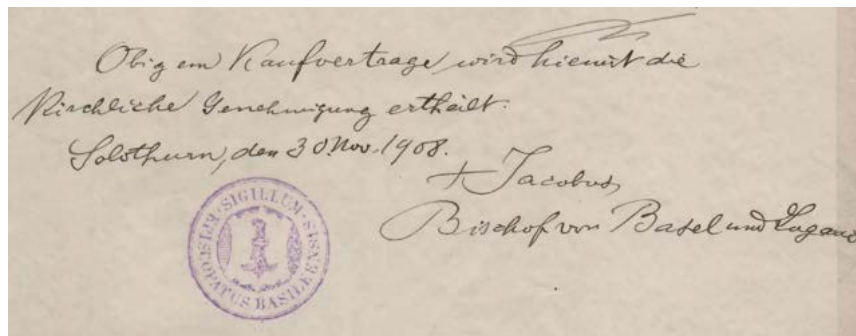 Obigem Kaufvertrage wird hiemit die
Kirchliche Genehmigung ertheilt.
Solothurn, den 30. Nov. 1908.
+ Jacobus
Bischof von Basel und Lugano
SIGILLUM · EPISCOPATUS BASILEENSIS